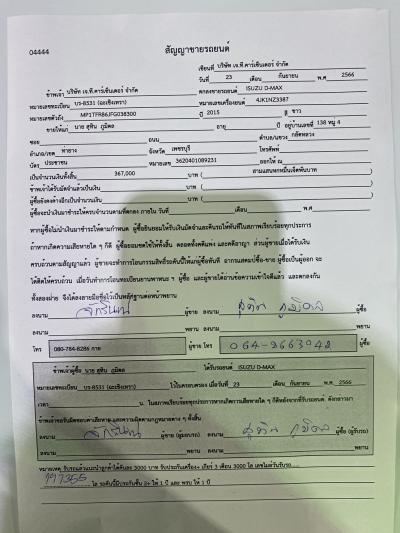 04444
สัญญาขายรถยนต์
เขียนที่ บริษัท เจ.ที.คาร์เซ็นเตอร์ จำกัด
วันที่ 23 เดือน กันยายน พ.ศ 2566
ข้าพเจ้า บริษัท เจ.ที.คาร์เซ็นเตอร์ จำกัด ตกลงขายรถยนต์ ISUZU D-MAX
หมายเลขทะเบียน บร-8531 (ฉะเชิงเทรา) หมายเลขเครื่องยนต์ 4JK1NZ3387
หมายเลขตัวถัง MP1TFR86JFG038300 ปี 2015 สี ขาว
ขายให้แก่ นาย สุทิน ภูมิดล อายุ ปี อยู่บ้านเลขที่ 138 หมู่ 4
ซอย ถนน ตำบล/แขวง กลัดหลวง
อำเภอ/เขต ท่ายาง จังหวัด เพชรบุรี โทรศัพท์
บัตร ประชาชน หมายเลข 3620401089231 ออกให้ ณ
เป็นจำนวนเงินทั้งสิ้น 367,000 บาท ( สามแสนหกหมื่นเจ็ดพันบาท
ข้าพเจ้าได้รับมัดจำแล้วเป็นเงิน บาท (
ผู้ซื้อยังคงค้างอีกเป็นจำนวนเงิน บาท (
ผู้ซื้อจะนำเงินมาชำระให้ครบจำนวนตามที่ตกลง ภายใน วันที่ เดือน พ.ศ
หากผู้ซื้อไม่นำเงินมาชำระตามกำหนด ผู้ซื้อยินยอมให้ริบเงินมัดจำและคืนรถให้ทันทีในสภาพเรียบร้อยทุกประการ
ถ้าหากเกิดความเสียหายใด ๆ ก็ดี ผู้ซื้อยอมชดใช้ให้ทั้งสิ้น ตลอดทั้งคดีแพ่ง และคดีอาญา ส่วนผู้ขายเมื่อได้รับเงิน
ครบถ้วนตามสัญญาแล้ว ผู้ขายจะทำการโอนกรรมสิทธิ์รถคันนี้ให้แก่ผู้ซื้อทันที
ได้คิดให้ครบถ้วน เมื่อวันทำการโอนทะเบียนยานพาหนะฯ ผู้ซื้อ และผู้ขายได้อ่านข้อความเข้าใจดีแล้ว และตกลงกัน
ทั้งสองฝ่าย จึงได้ลงลายมือชื่อไว้เป็นหลักฐานต่อหน้าพยาน
ลงนาม ผู้ขาย ลงนาม สุทิน ภูมิดล ผู้ซื้อ
ลงนาม พยาน ลงนาม พยาน
โทร 080-784-8286 กาย ผู้ขาย โทร 064-2663042 ผู้ซื้อ
ข้าพเจ้าผู้ซื้อ นาย สุทิน ภูมิดล ได้รับรถยนต์ ISUZU D-MAX
หมายเลขทะเบียน บร-8531 (ฉะเชิงเทรา) ไว้ในครอบครอง เมื่อวันที่ 23 เดือน กันยายน พ.ศ 2566
เวลา น. ในสภาพเรียบร้อยทุกประการหากเกิดการเสียหายใด ๆ ก็ดีหลังจากที่รับรถยนต์ ดังกล่าวมา
ข้าพเจ้าขอรับผิดชอบค่าเสียหายและความผิดตามกฎหมายต่าง ๆ ทั้งสิ้น
ลงนาม ผู้ขาย (ผู้มอบรถ) ลงนาม สุทิน ภูมิดล ผู้ซื้อ (ผู้รับรถ)
ลงนาม พยาน ลงนาม พยาน
หมายเหตุ รับรถแล้วแนะนำลูกค้าได้คันละ 3000 บาท รับประกันเครื่อง+ เกียร์ 3 เดือน 3000 โล เลขไมล์วันรับรถ
197355 โล รถคันนี้มีประกันชั้น 2+ ให้ 1 ปี และ พรบ ให้ 1 ปี